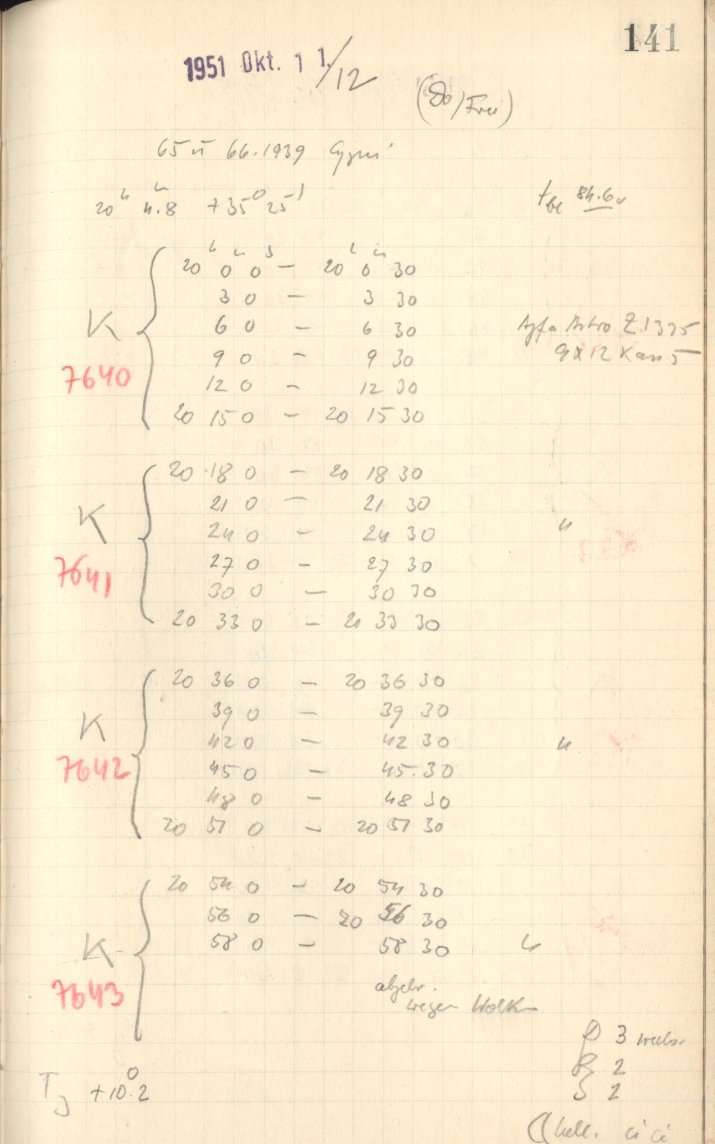 141
1951 Okt. 11./12
(Do/Frei)
65 u 66.1939 Cygni
20ʰ 4.8 +35° 25'
20ʰ 0ᵐ 0ˢ – 20ʰ 0ᵐ 30
3 0 – 3 30
K 6 0 – 6 30 Agfa Astro Z 1335
7640 9 0 – 9 30 9x12 Kass
12 0 – 12 30
20 15 0 – 20 15 30
20 18 0 – 20 18 30
21 0 – 21 30
K 24 0 – 24 30 "
7641 27 0 – 27 30
30 0 – 30 30
20 33 0 – 20 33 30
20 36 0 – 20 36 30
39 0 – 39 30
K 42 0 – 42 30 "
7642 45 0 – 45.30
48 0 – 48 30
20 51 0 – 20 51 30
20 54 0 – 20 54 30
56 0 – 20 56 30
K 58 0 – 58 30 "
7643 abgebr.
wegen Wolken
D 3 wechs.
R 2
T +10°.2 S 2
hell. ci ci